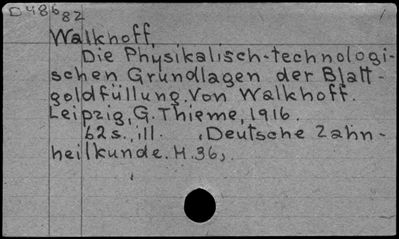 D486
82
Walkhoff,
Die Physikalisch-technologi-
schen Grundlagen der Blatt-
goldfüllung. Von Walkhoff.
Leipzig, G. Thieme, 1916.
62s., ill. (Deutsche Zahn-
heilkunde. H. 36),